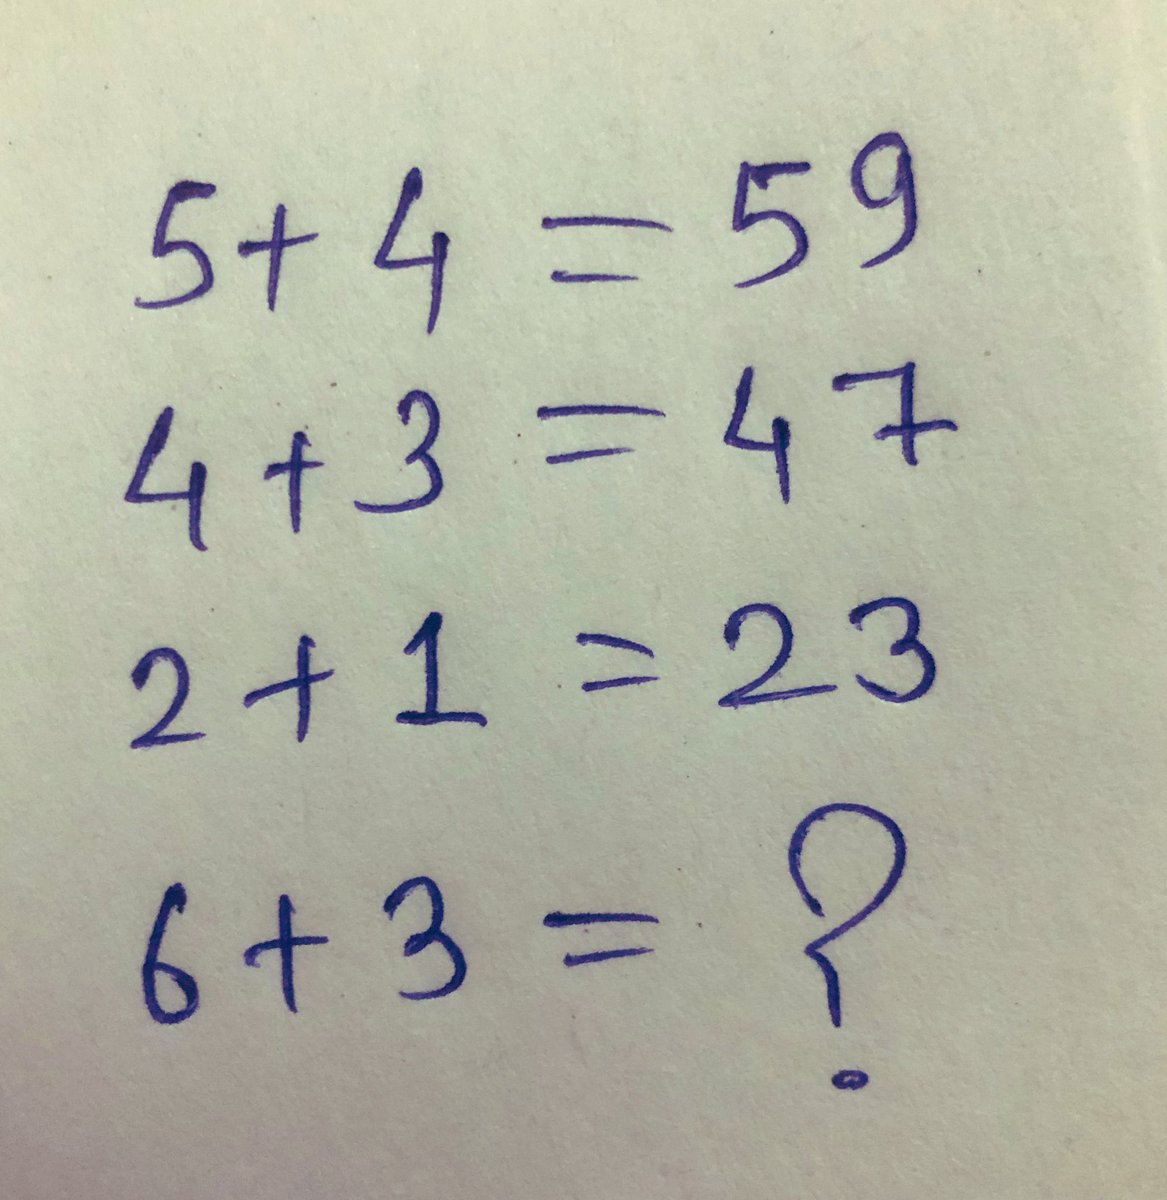 5 + 4 = 59
4 + 3 = 47
2 + 1 = 23
6 + 3 = ?